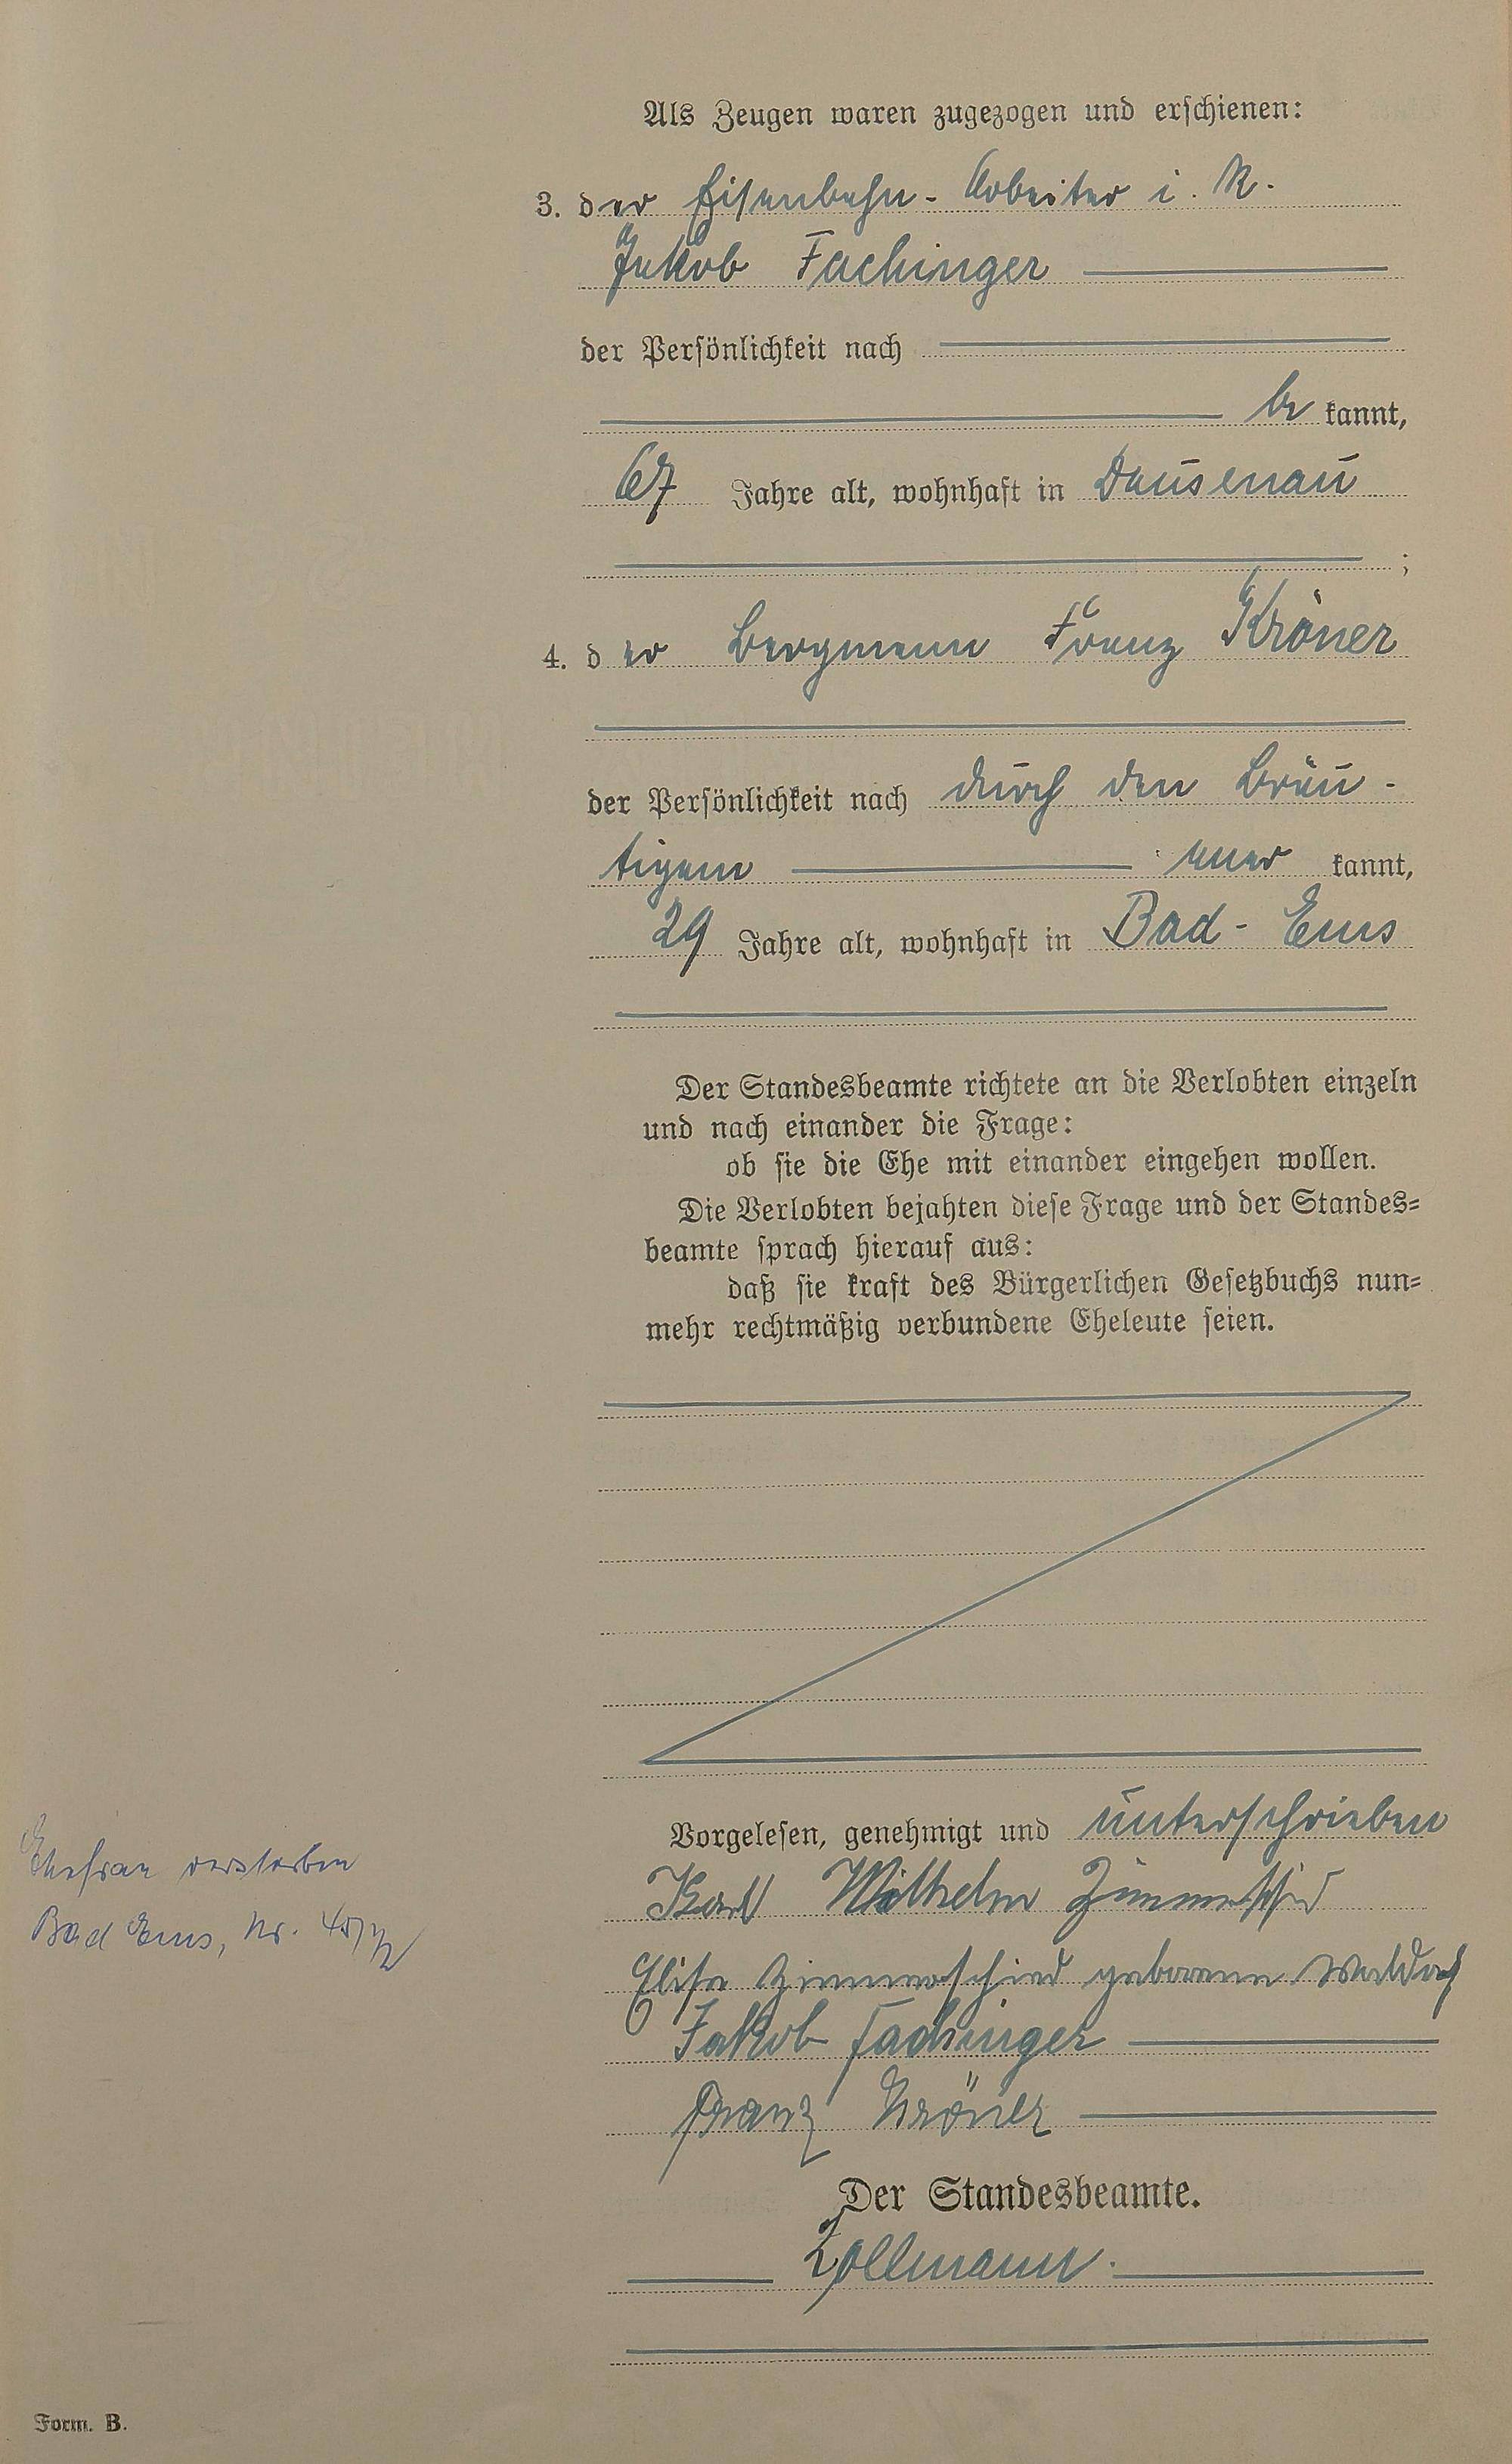 Als Zeugen waren zugezogen und erschienen:
3. der Eisenbahn-Arbeiter i. R.
Jakob Fachinger
der Persönlichkeit nach
be kannt,
67 Jahre alt, wohnhaft in Dausenau
;
4. der Bergmann Franz Kröner
der Persönlichkeit nach durch den Bräu-
tigam aner kannt,
29 Jahre alt, wohnhaft in Bad-Ems
Der Standesbeamte richtete an die Verlobten einzeln
und nach einander die Frage:
ob sie die Ehe mit einander eingehen wollen.
Die Verlobten bejahten diese Frage und der Standes-
beamte sprach hierauf aus:
daß sie kraft des Bürgerlichen Gesetzbuchs nun-
mehr rechtmäßig verbundene Eheleute seien.
Vorgelesen, genehmigt und unterschrieben
Karl Wilhelm
Elise Zimmerschied geborene
Jakob Fachinger
Franz Kröner
Der Standesbeamte.
Zollmann.
Ehefrau verstorben
Bad Ems, Nr.
Form. B.